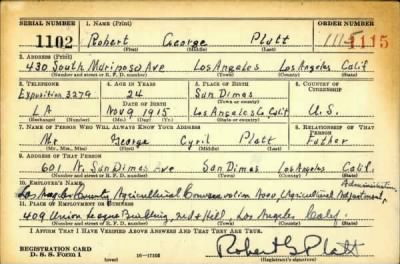 SERIAL NUMBER 1. NAME (Print) ORDER NUMBER
1102 Robert George Platt 1115
(First) (Middle) (Last)
2. ADDRESS (Print)
430 South Mariposa Ave Los Angeles Los Angeles Calif
(Number and street or R. F. D. number) (Town) (County) (State)
3. TELEPHONE 4. AGE IN YEARS 5. PLACE OF BIRTH 6. COUNTRY OF CITIZENSHIP
Exposition 3279 24 San Dimas
(Town or county)
LA Nov 9 1915 Los Angeles Co Calif U.S.
7. NAME OF PERSON WHO WILL ALWAYS KNOW YOUR ADDRESS 8. RELATIONSHIP OF THAT PERSON
Mr George Cyril Platt Father
(Mr., Mrs., Miss) (First) (Middle) (Last)
9. ADDRESS OF THAT PERSON
601 N. San Dimas Ave San Dimas Los Angeles Calif.
(Number and street or R. F. D. number) (Town) (County) (State)
10. EMPLOYER'S NAME Administration
Los Angeles County Agricultural Conservation Assn, Agricultural Adjustment
11. PLACE OF EMPLOYMENT OR BUSINESS
409 Union League Building, 2nd & Hill, Los Angeles Calif.
(Number and street or R. F. D. number) (Town) (County) (State)
I AFFIRM THAT I HAVE VERIFIED ABOVE ANSWERS AND THAT THEY ARE TRUE.
REGISTRATION CARD
D. S. S. FORM 1 Robert G Platt